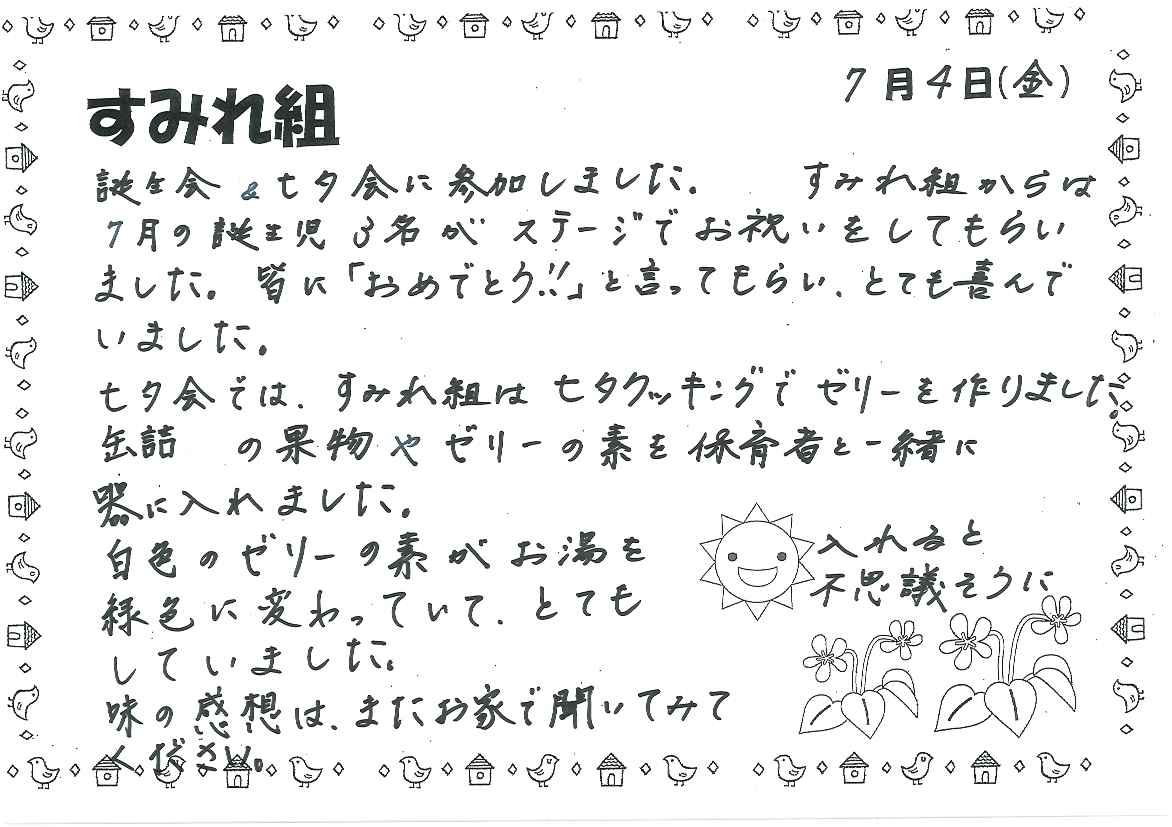 7月4日(金)
すみれ組
誕生会&七夕会に参加しました。 すみれ組からは
7月の誕生児3名がステージでお祝いをしてもらい
ました。皆に「おめでとう!!」と言ってもらい、とても喜んで
いました。
七夕会では、すみれ組は七夕クッキングでゼリーを作りました。
缶詰 の果物やゼリーの素を保育者と一緒に
器に入れました。
白色のゼリーの素がお湯を 入れると
緑色に変わっていて、とても 不思議そうに
していました。
味の感想は、またお家で聞いてみて
ください。